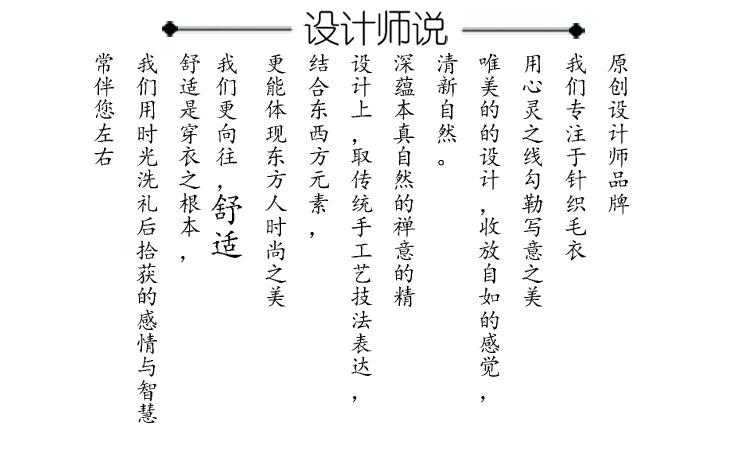 设计师说
原创设计师品牌
我们专注于针织毛衣
用心灵之线勾勒写意之美
唯美的的设计,收放自如的感觉,
清新自然。
深蕴本真自然的禅意的精
设计上,取传统手工艺技法表达,
结合东西方元素,
更能体现东方人时尚之美
我们更向往,舒适
舒适是穿衣之根本,
我们用时光洗礼后拾获的感情与智慧
常伴您左右